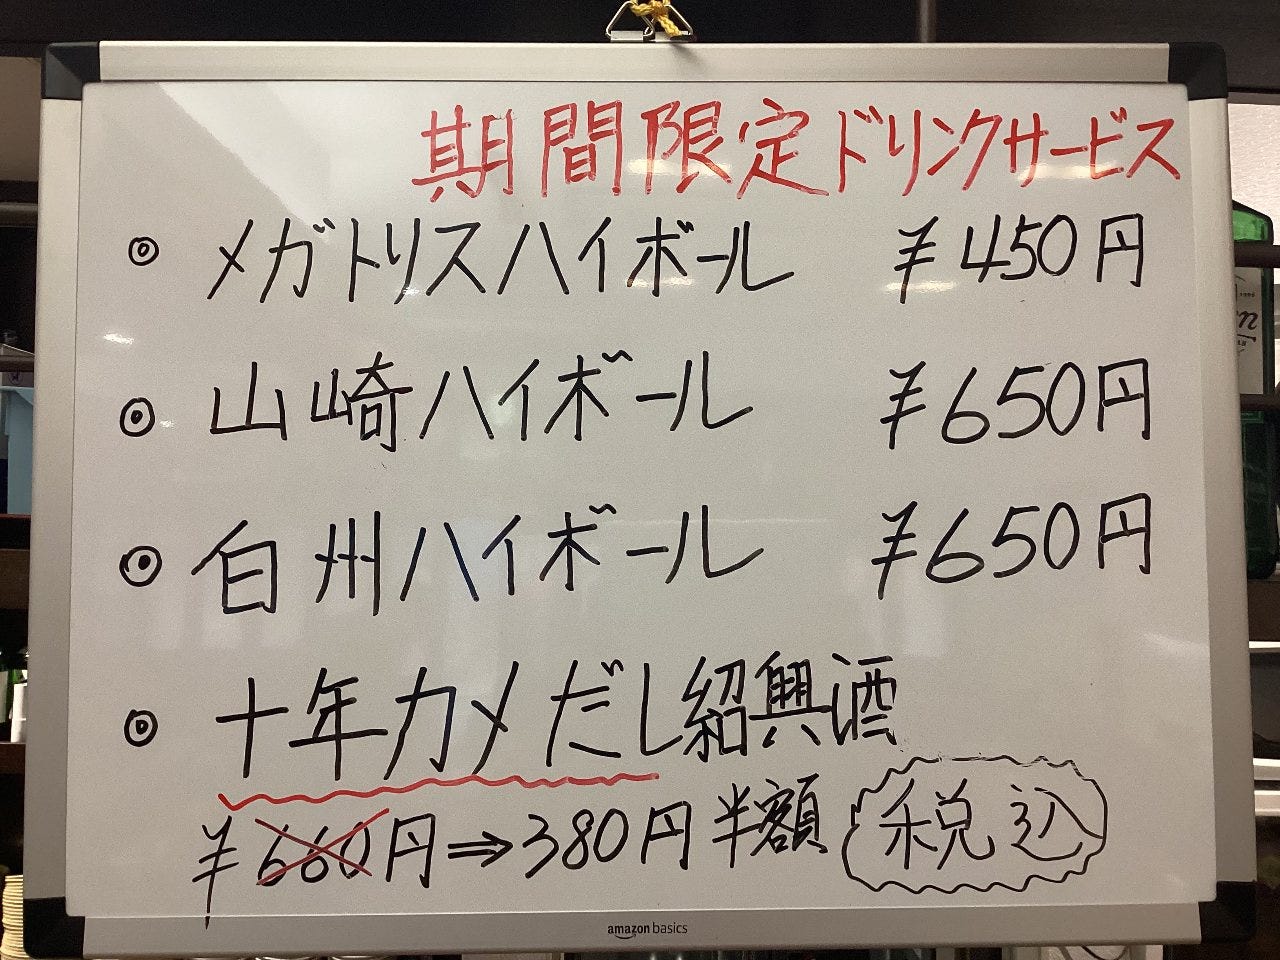 期間限定ドリンクサービス
◎ メガトリスハイボール ¥450円
◎ 山崎ハイボール ¥650円
◎ 白州ハイボール ¥650円
◎ 十年カメだし紹興酒
¥660円⇒380円半額 税込
amazon basics